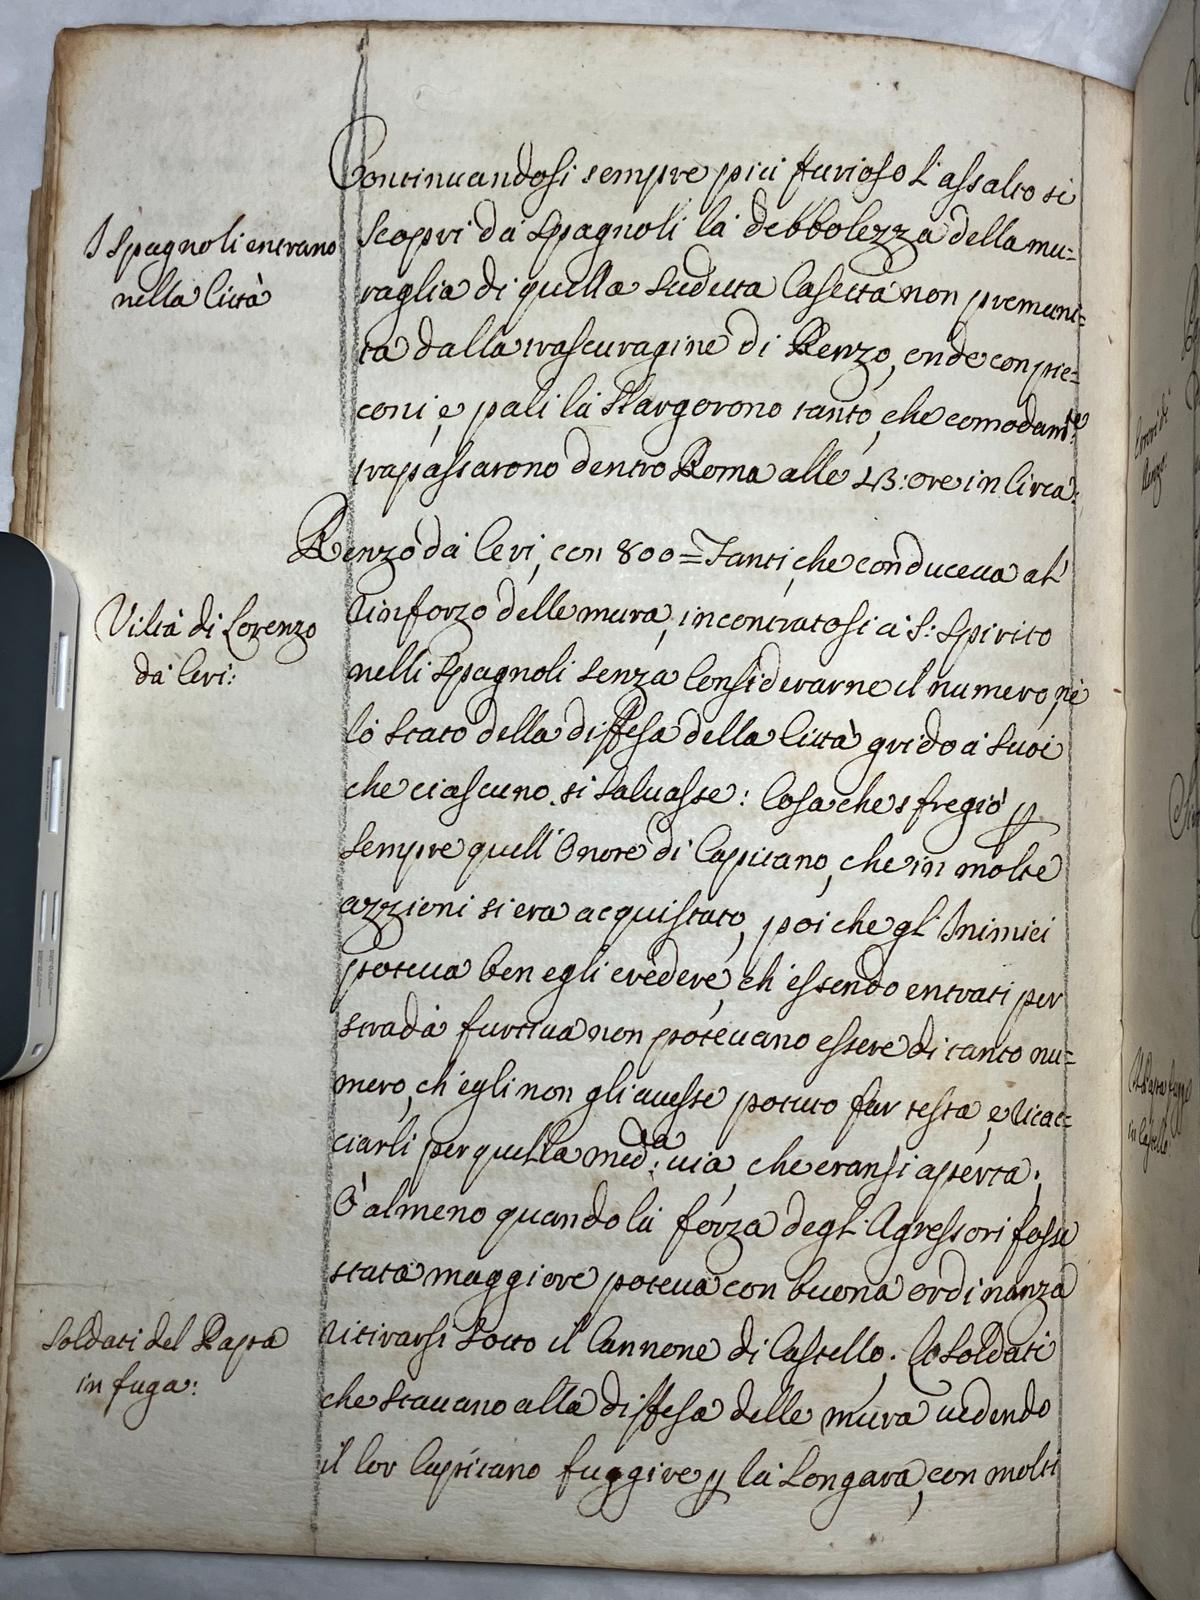 Continuandosi sempre più furioso l'assalto si
I Spagnoli entrano
nella Città
scoprì da Spagnoli la debbolezza della mu=
raglia di quella sudetta Casetta non premuni=
ta dalla trascuragine di Renzo, onde con pic=
coni, e pali la slargorono tanto, che comodam.te
trapassarono dentro Roma alle 13: ore in Circa:
Renzo da Ceri, con 800= Fanti, che conduceva al
Viltà di Lorenzo
da Ceri:
rinforzo delle mura, incontratosi a S: Spirito
nelli Spagnoli senza Considerarne il numero, nè
lo stato della diffesa della Città gridò a suoi
che ciascuno si salvasse: Cosa che sfregiò p
sempre quell'Onore di Capitano, che in molte
azzioni si era acquistato, poiche gl'Inimici
poteva ben egli credere, ch'essendo entrati per
strada furtiva non potevano essere di tanto nu=
mero, ch'egli non gli avesse potuto far testa, e ricac=
ciarli per quella med:a via, che eransi aperta;
O' almeno quando la forza degl'Agressori fosse
stata maggiore poteva con buona ordinanza
ritirarsi sotto il Cannone di Castello. Li soldati
Soldati del Papa
in fuga:
che stavano alla diffesa delle mura vedendo
il lor Capitano fuggire p la Longara, con molti
Renzo
in Castello